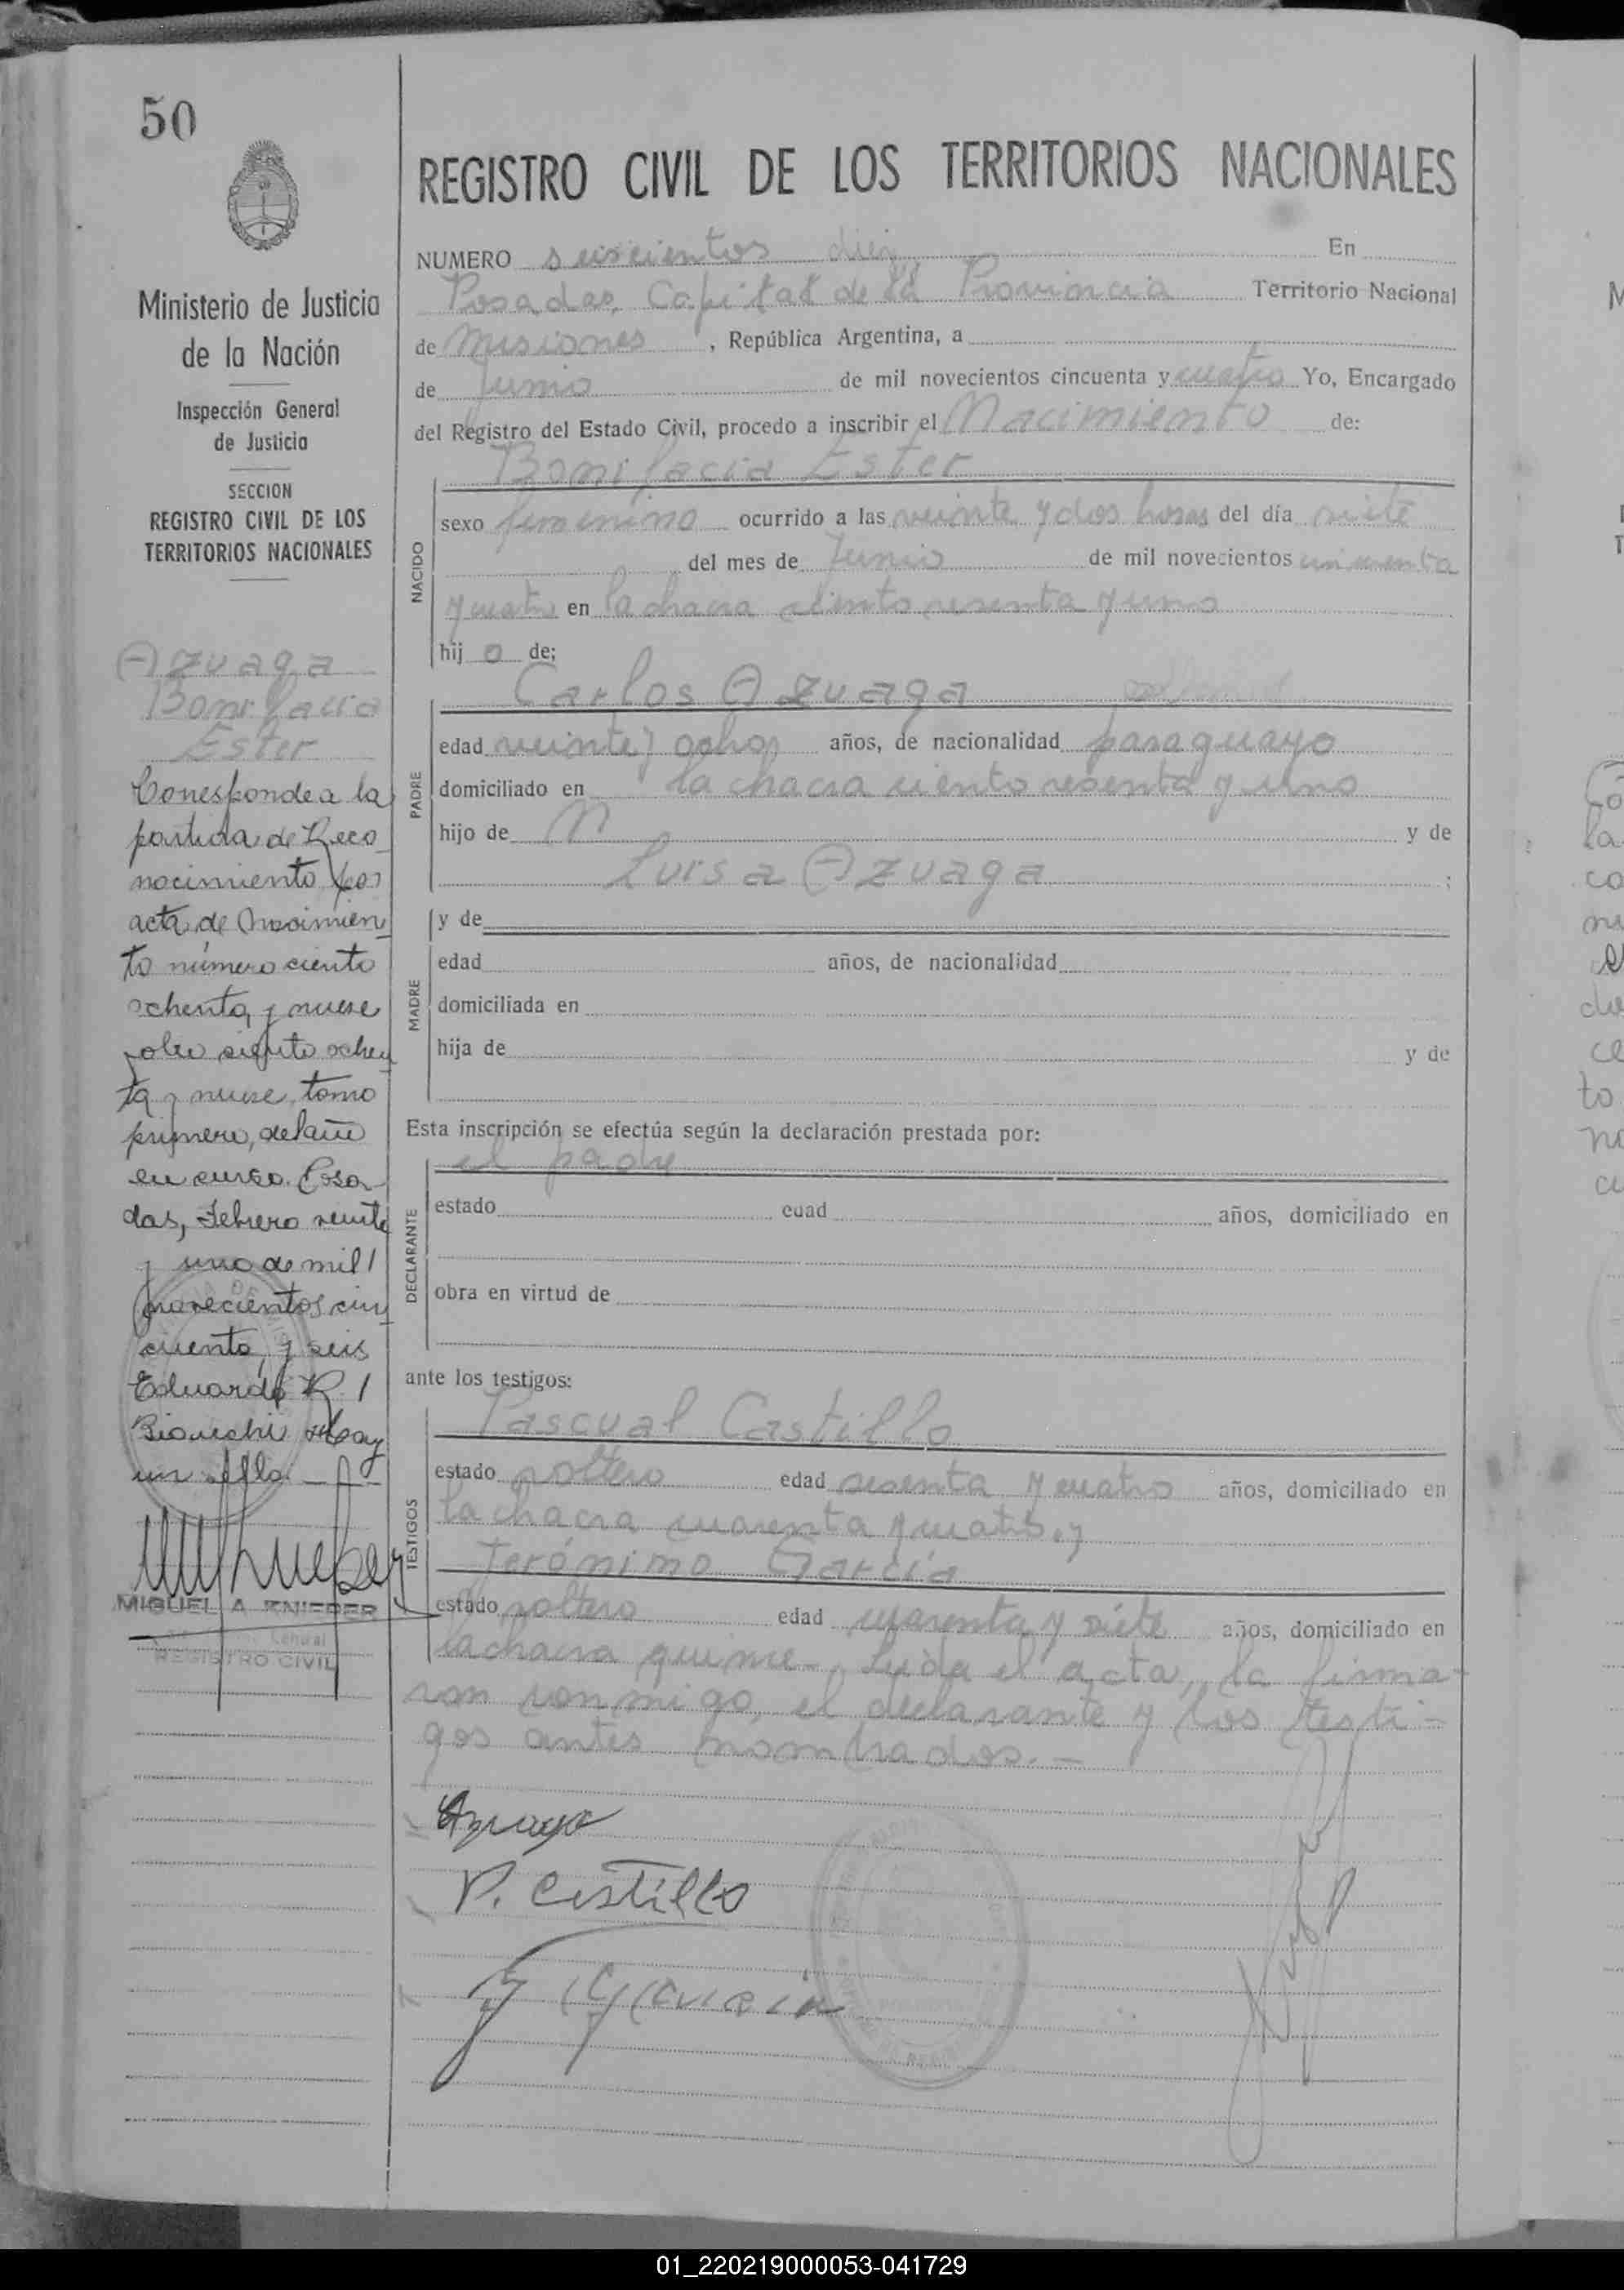 50
Ministerio de Justicia
de la Nación
Inspección General
de Justicia
SECCION
REGISTRO CIVIL DE LOS
TERRITORIOS NACIONALES
Azuaga
Bonifacia
Ester
Corresponde a la
partida de Reco
nocimiento por
acta de Nacimien
to número ciento
ochenta y nueve
folio ciento ochen
ta y nueve, tomo
primero, del año
en curso. Posa
das, Febrero veinte
y uno de mil
novecientos cin
cuenta y seis
Eduardo R.
Bianchi Hay
un sello
MIGUEL A. KNIEPER
Central
REGISTRO CIVIL
REGISTRO CIVIL DE LOS TERRITORIOS NACIONALES
NUMERO seiscientos diez En
Posadas, Capital de la Provincia Territorio Nacional
de Misiones, República Argentina, a
de Junio de mil novecientos cincuenta y cuatro Yo, Encargado
del Registro del Estado Civil, procedo a inscribir el Nacimiento de:
Bonifacia Ester
NACIDO
sexo femenino ocurrido a las veinte y dos horas del día siete
del mes de Junio de mil novecientos cincuenta
y cuatro en la chacra ciento sesenta y uno
hij o de;
Carlos Azuaga
PADRE
edad veinte y ocho años, de nacionalidad paraguayo
domiciliado en la chacra ciento sesenta y uno
hijo de N y de
Luisa Azuaga ;
y de
MADRE
edad años, de nacionalidad
domiciliada en
hija de y de
Esta inscripción se efectúa según la declaración prestada por:
el padre
DECLARANTE
estado edad años, domiciliado en
obra en virtud de
ante los testigos:
Pascual Castillo
TESTIGOS
estado soltero edad sesenta y cuatro años, domiciliado en
la chacra cuarenta y cuatro, y
Jerónimo García
estado soltero edad cuarenta y siete años, domiciliado en
la chacra quince - Leída el acta, la firma-
ron conmigo, el declarante y los testi-
gos antes nombrados. -
Azuaga
P. Castillo
J García
01_220219000053-041729